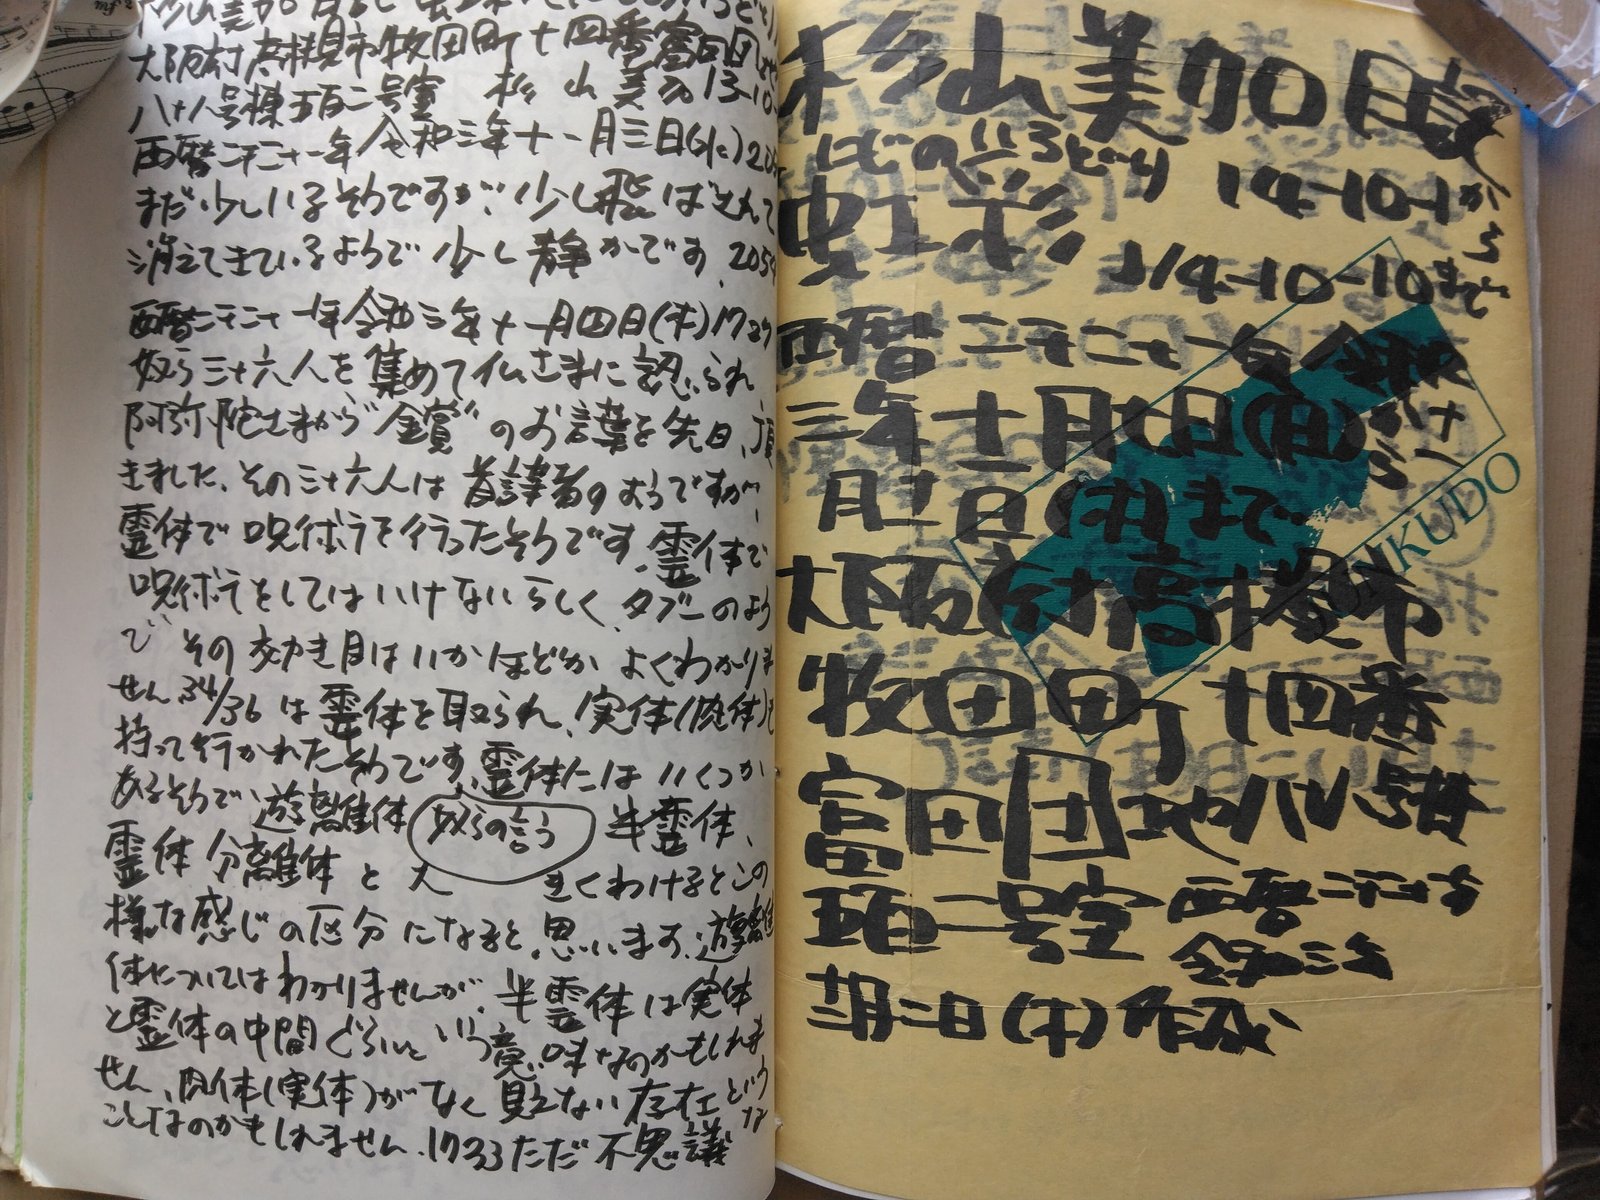 大阪府高槻市牧田町十四番富田団地
八十八号棟五百二号室 杉山美加 13-10-
西暦二千二十一年令和三年十一月三日(水)205
まだ少しいるそうですが、少し飛ばされて
消えてきているようで少し静かです。2054
西暦二千二十一年令和三年十一月四日(木)1727
奴ら三十六人を集めて仏さまに認められ、
阿弥陀さまから"金賞"のお言葉を先日、頂
きました。その三十六人は首謀者のようですが、
霊体で呪術ラを行ったそうです。霊体で
呪術ラをしてはいけないらしく、タブーのよう
で、その効き目はいかほどか よくわかりま
せん。34/36は霊体を取られ、実体(肉体)も
持って行かれたそうです。霊体にはいくつか
あるそうで、遊離体 奴らの言う 半霊体、
霊体分離体と大 きくわけるとこの
様な感じの区分になると思います。遊離
体についてはわかりませんが、半霊体は実体
と霊体の中間ぐらいという意味なのかもしれま
せん。肉体(実体)がなく見えない存在という
ことなのかもしれません。1733ただ不思議な
杉山美加展
にじのいろどり 14-10-1から
虹彩 14-10-10まで
西暦二千二十一年令和
三年十一月七日(日)から十一
月 日(水)まで
大阪府高槻市
牧田町十四番
富田団地八十八号棟
五百二号室 西暦二千二十一年
令和三年
十一月 日(木)作成
KUDO